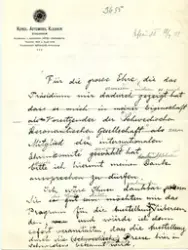 KUNGL. AUTOMOBIL KLUBBEN
STOCKHOLM
5655
Für die grosse Ehre, die das
Präsidium mir dadurch gezeigt hat
dass es mich in meiner Eigenschaft
als Vorsitzender der Schwedischen
Aeronautischen Gesellschaft als
Mitglied des internationalen
Ehrenkomite gewählt hat,
bitte ich hiermit meinen Danke
aussprechen zu dürfen.
Ich wäre Ihnen dankbar, wenn
Sie so gut sein möchten mir das
Programm für die Ausstellung
zu
und würde ich dann
sofort veranlassen, dass die Ausstellung
durch die schwedische Presse hier in
Schweden bekannt wird.